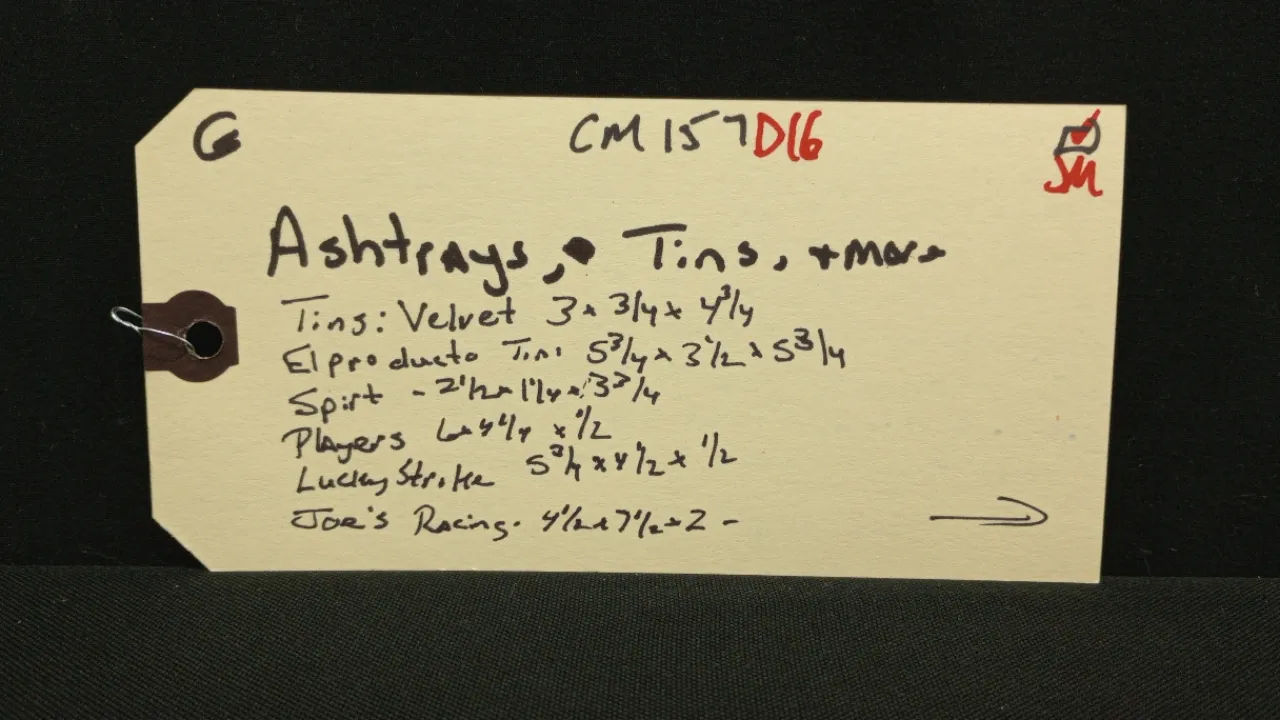 G CM157D16
SM
Ashtrays, Tins, + more
Tins: Velvet 3 x 3/4 x 4 3/4
Elproducto Tin: 5 3/4 x 3 1/2 x 5 3/4
Spirt - 2 1/2 x 1 1/4 x 3 3/4
Players 6 x 4 1/4 x 1/2
Lucky Strike 5 3/4 x 4 1/2 x 1/2
Joe's Racing. 4 1/2 x 7 1/2 x 2 -